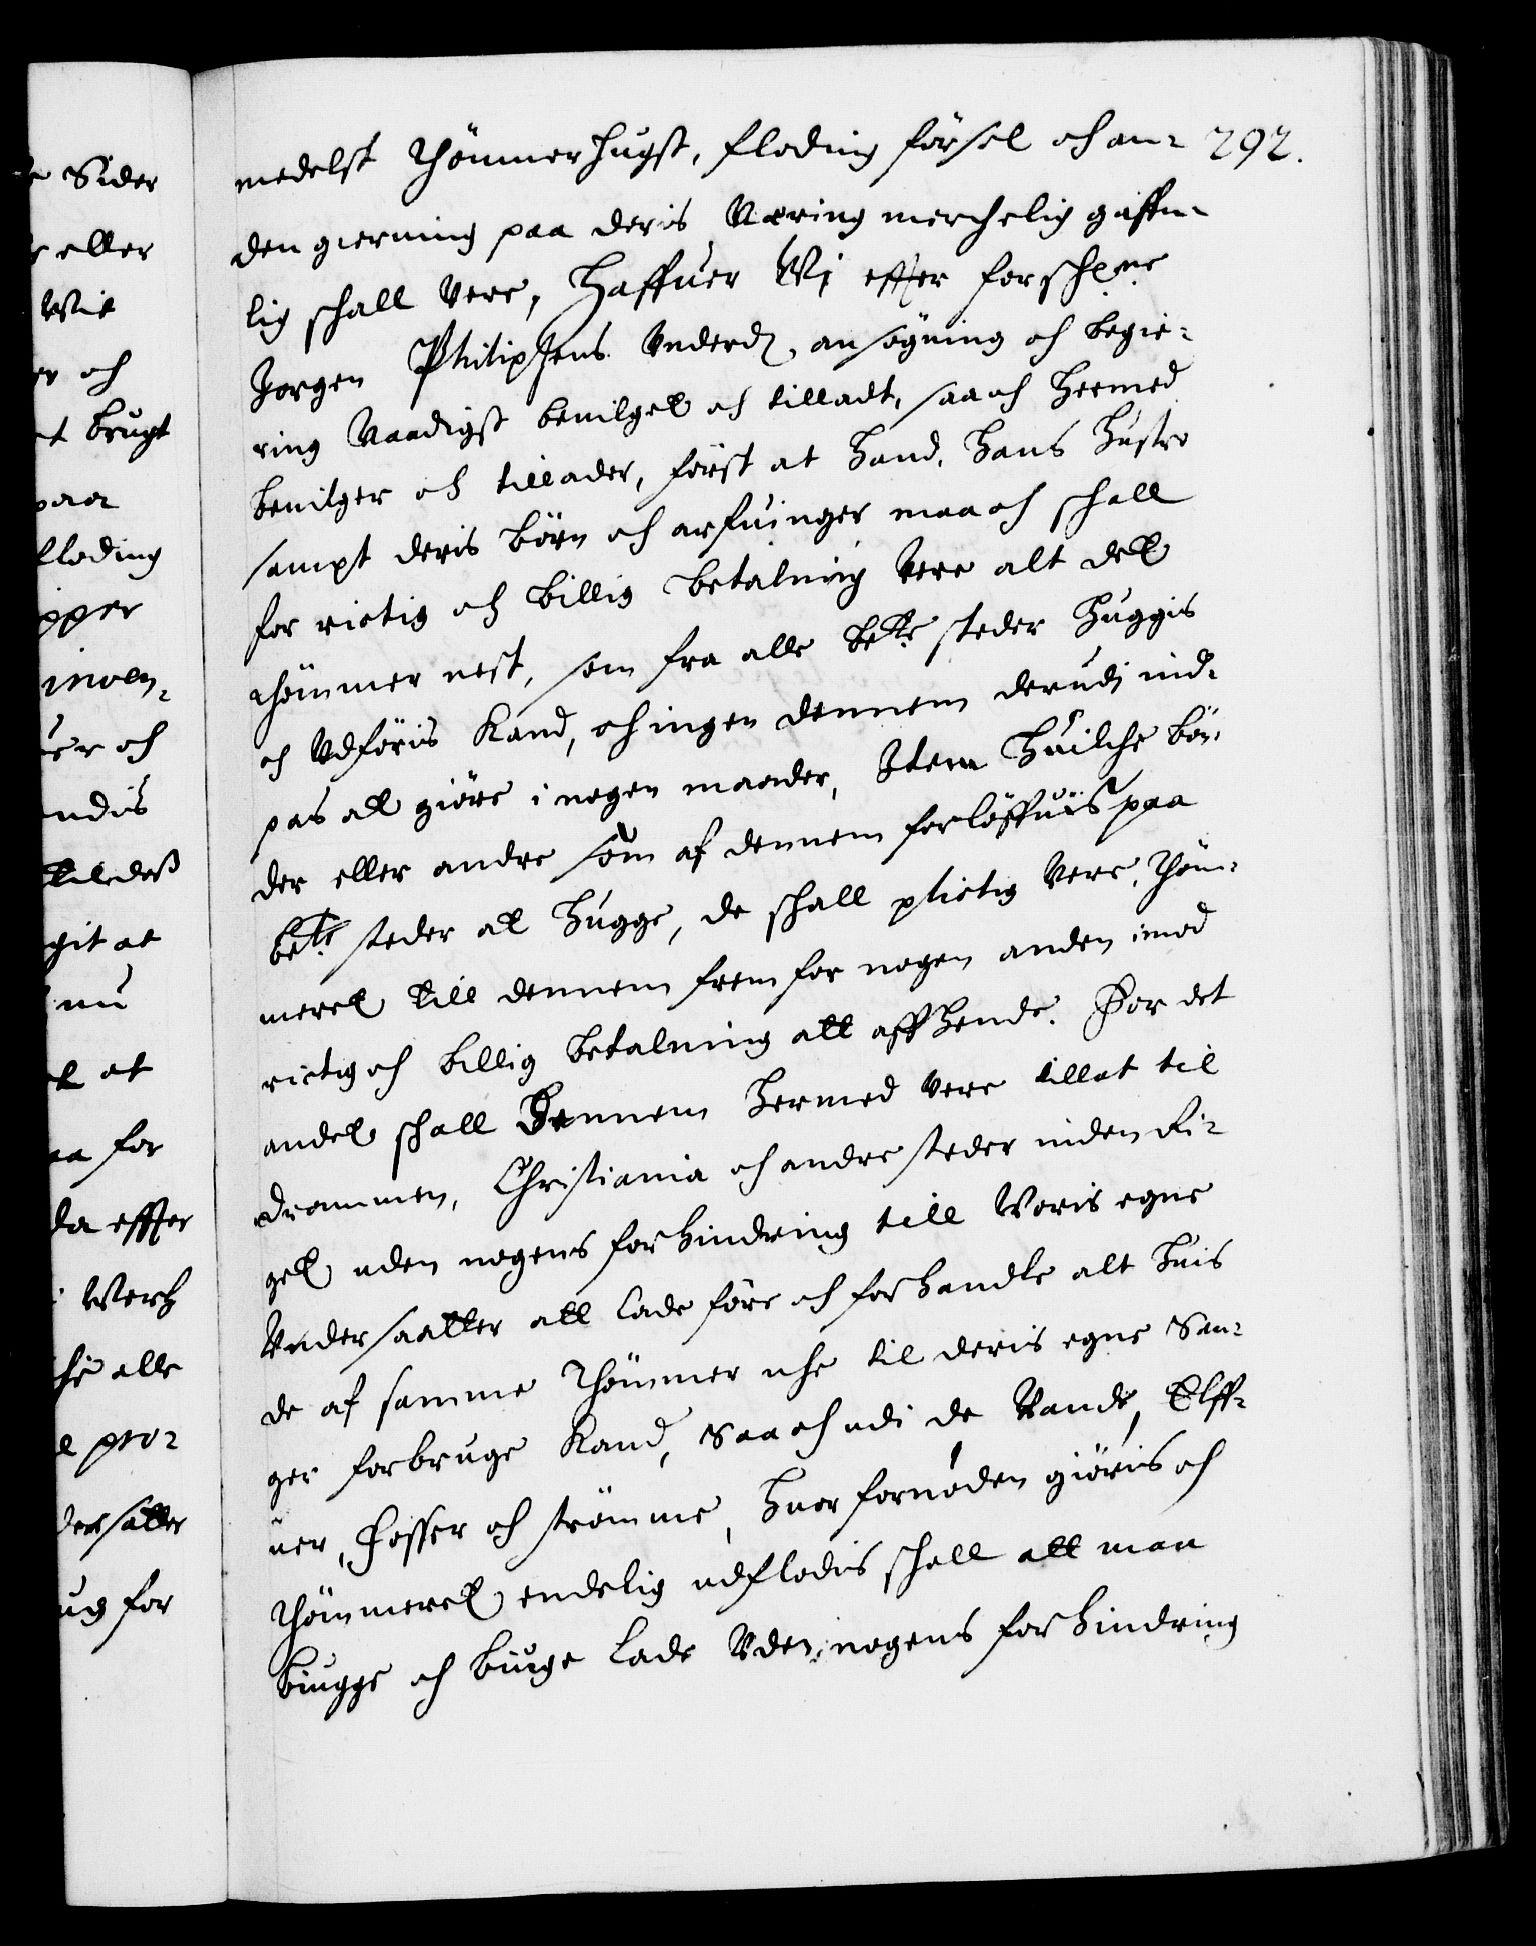 292.
medelst Thömmerhugst, floding försel och an-
den gierning paa deris Næring merchelig gaffn-
lig schall vere, Haffuer Wi effter forschne
Jorgen Philipsens Underd. ansögning och begie-
ring Naadigst beuilget och tilladt, saa och Hermed
beuilger och tillader, först at Hand, Hans Hustro
sampt deris börn och arfuinger maa och schall
for rictig och billig betalning vere alt det
thömmer nest, som fra alle bete steder Huggis
och Udföris Kand, och ingen dennem derudi ind-
pas att giöre i nogen maader, Item Huilche bön-
der eller andre som af dennem forlöffuis paa
bete steder at Hugge, de schall plictig vere, Thöm-
meret till dennem frem for nogen anden imod
rictig och billig betalning att affhende. For det
andet schall Dennem Hermed vere tillat til
Drammen, Christiania och andre steder inden Ri-
get uden nogens forhindring till Voris egne
Undersaatter att lade före och forhandle alt Huis
de af samme Thömmer iche til deris egne Sau-
ger forbruge Kand, Saa och udi de Vande, Elff-
uer, Fosser och strömme, Huor fornöden giöris och
Thömmeret endelig udflodis schall att maa
biugge och biuge lade Uden nogens forhindring
Sider
eller
Wit
er och
brugt
paa
floding
och
nu
at
for
da effter
Werch
alle
pro-
for